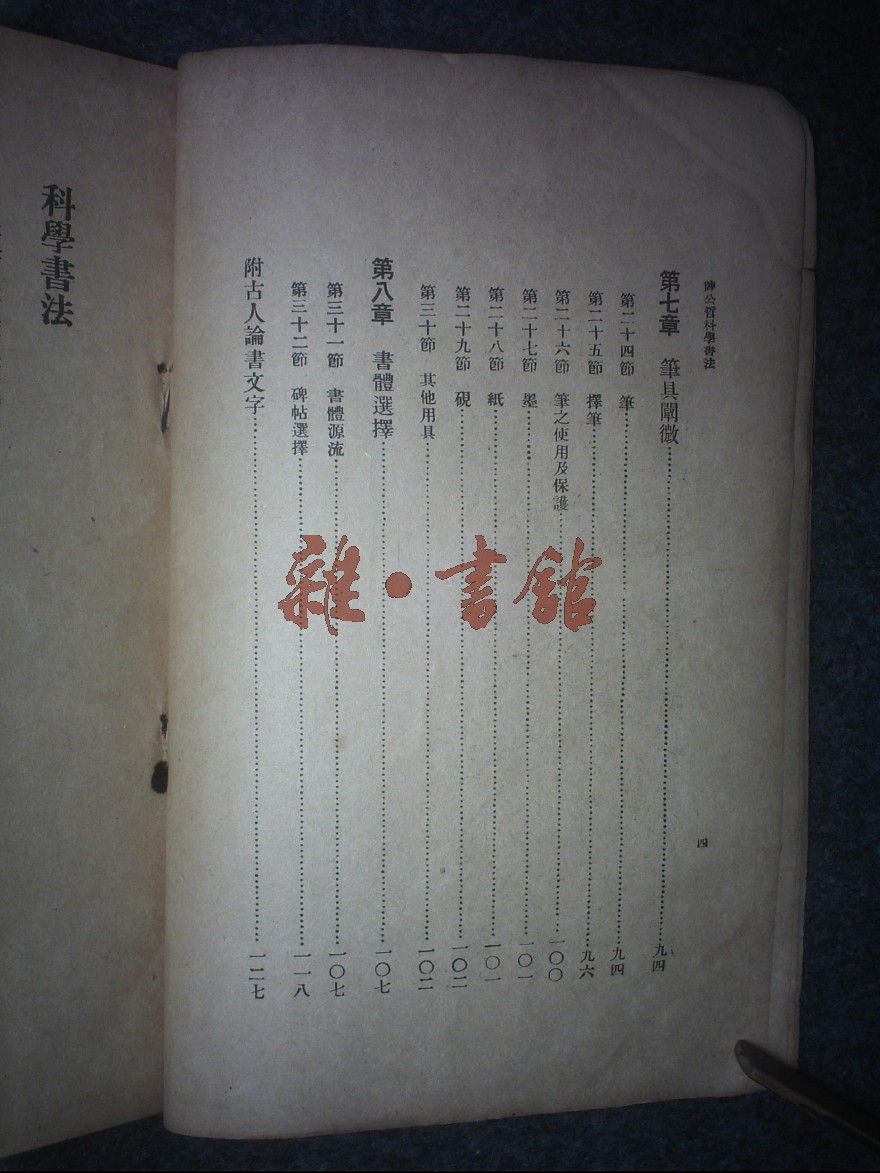 陳公哲科學書法
第七章　筆具闡微……九四
第二十四節　筆……九四
第二十五節　擇筆……九六
第二十六節　筆之使用及保護……一〇〇
第二十七節　墨……一〇一
第二十八節　紙……一〇一
第二十九節　硯……一〇二
第三十節　其他用具……一〇二
第八章　書體選擇……一〇七
第三十一節　書體源流……一〇七
第三十二節　碑帖選擇……一一八
附古人論書文字……一二七
四
科學書法
雜·書館